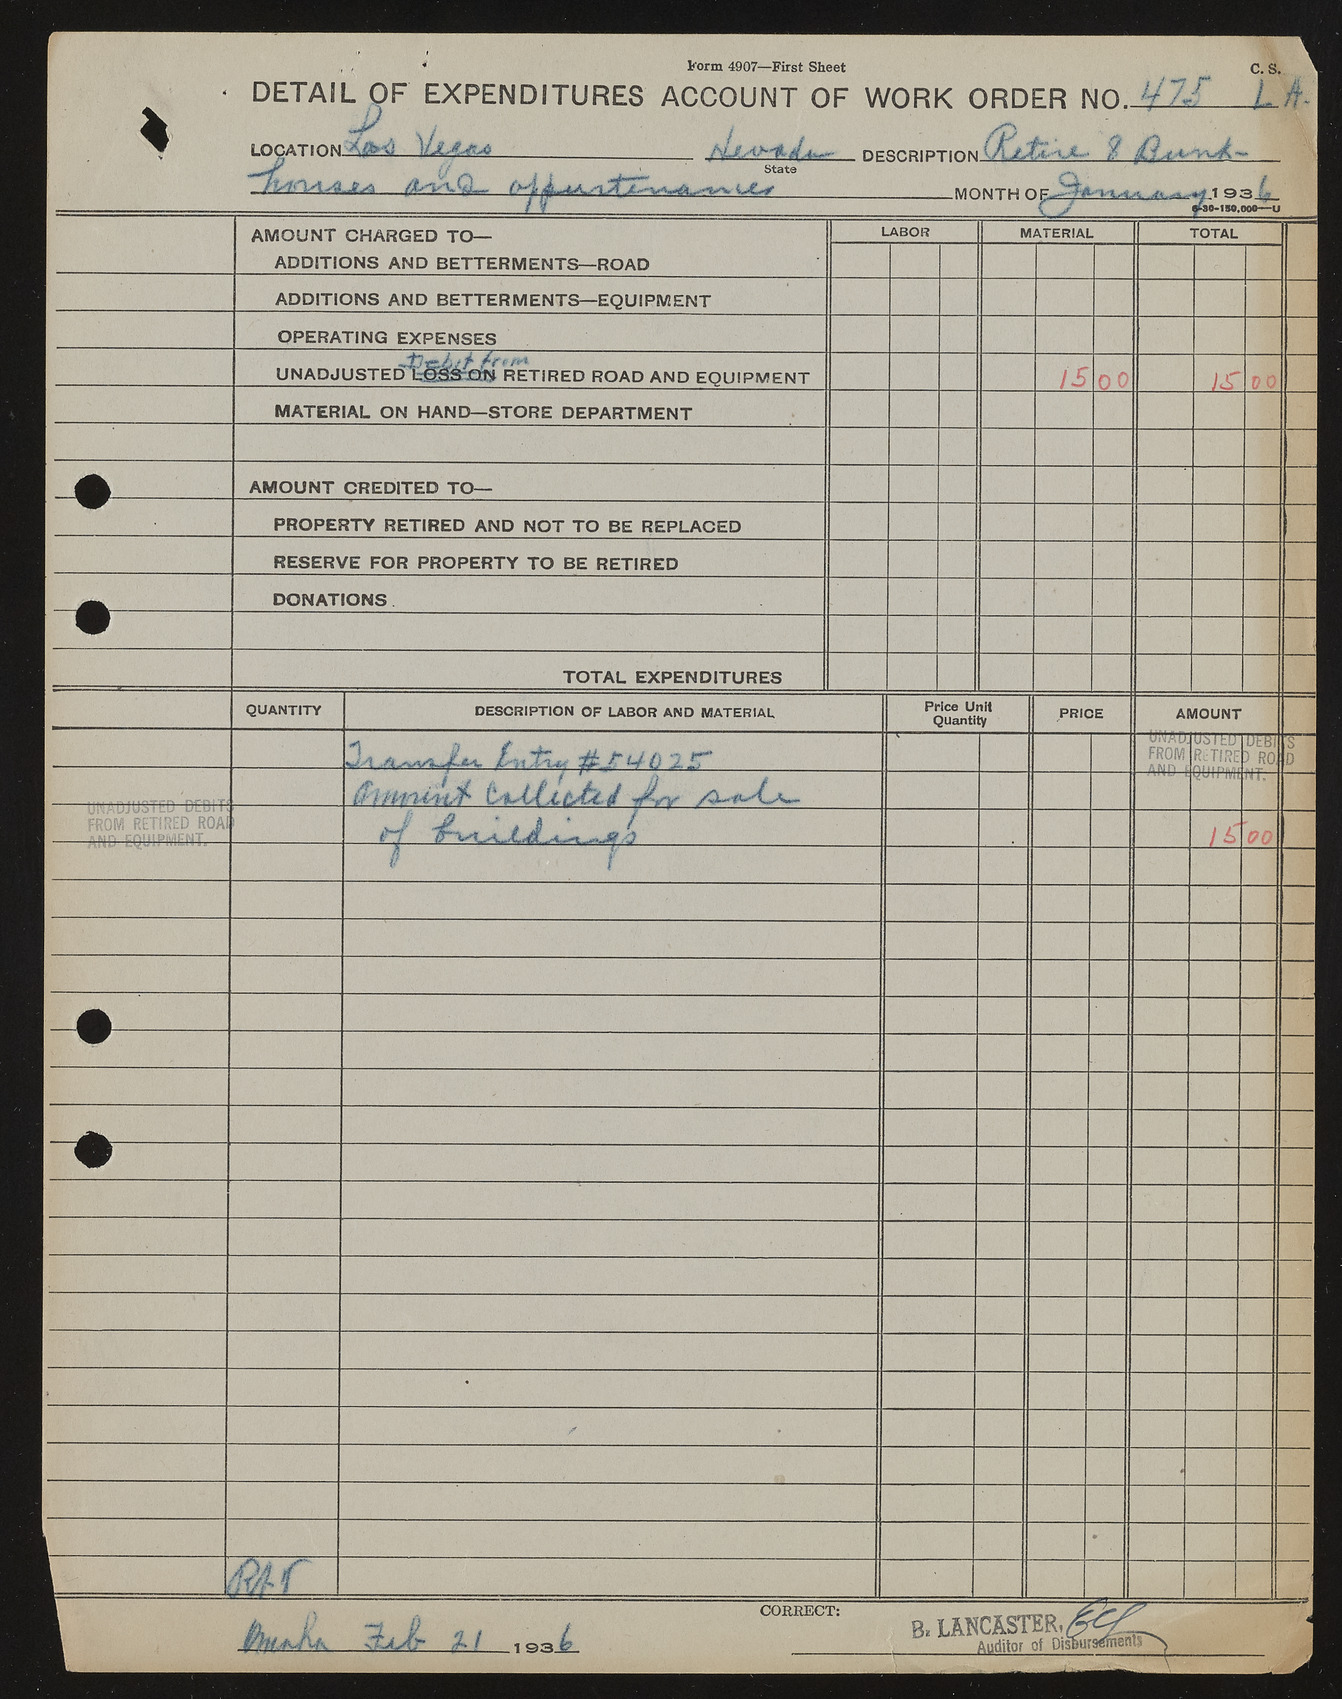 Form 4907—First Sheet
C. S.
DETAIL OF EXPENDITURES ACCOUNT OF WORK ORDER NO. 475 L A.
LOCATION Las Vegas Nevada DESCRIPTION Retire 8 Bunk-
State
houses and appurtenances MONTH OF January 1936
6-30-150,000—U
AMOUNT CHARGED TO— LABOR MATERIAL TOTAL
ADDITIONS AND BETTERMENTS—ROAD
ADDITIONS AND BETTERMENTS—EQUIPMENT
OPERATING EXPENSES
Debit from
UNADJUSTED LOSS ON RETIRED ROAD AND EQUIPMENT 15 00 15 00
MATERIAL ON HAND—STORE DEPARTMENT
AMOUNT CREDITED TO—
PROPERTY RETIRED AND NOT TO BE REPLACED
RESERVE FOR PROPERTY TO BE RETIRED
DONATIONS
TOTAL EXPENDITURES
QUANTITY DESCRIPTION OF LABOR AND MATERIAL Price Unit Quantity PRICE AMOUNT
UNADJUSTED DEBITS
FROM RETIRED ROAD
AND EQUIPMENT.
Transfer Entry #54025
Amount Collected for sale
of buildings 15 00
UNADJUSTED DEBITS
FROM RETIRED ROAD
AND EQUIPMENT.
CORRECT:
Omaha Feb 21 1936
B. LANCASTER,
Auditor of Disbursements